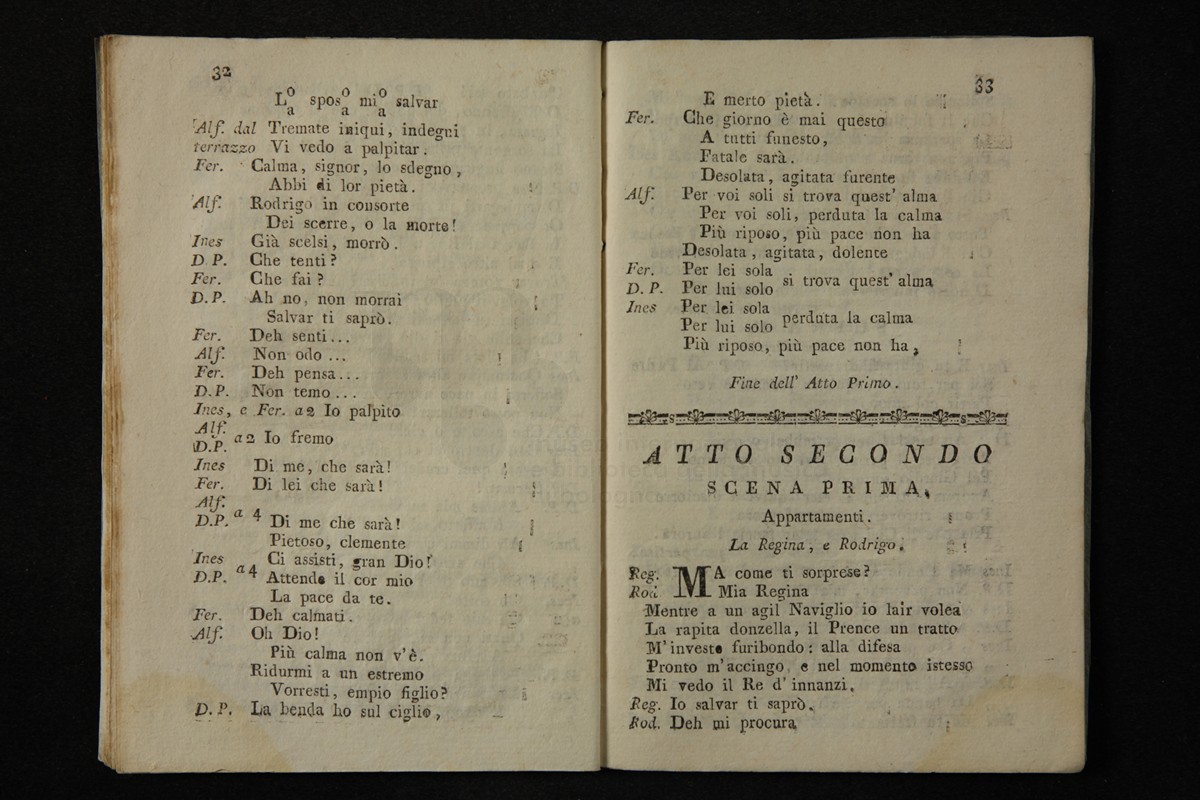 32
Lo/a sposo/a mio/a salvar
Alf. dal Tremate iniqui, indegni
terrazzo Vi vedo a palpitar.
Fer. Calma, signor, lo sdegno,
Abbi di lor pietà.
Alf. Rodrigo in consorte
Dei scerre, o la morte!
Ines Già scelsi, morrò.
D P. Che tenti?
Fer. Che fai?
D. P. Ah no, non morrai
Salvar ti saprò.
Fer. Deh senti...
Alf. Non odo...
Fer. Deh pensa...
D. P. Non temo...
Ines, e Fer. a 2 Io palpito
Alf.
D.P. a 2 Io fremo
Ines Di me, che sarà!
Fer. Di lei che sarà!
Alf.
D.P. a 4 Di me che sarà!
Pietoso, clemente
Ines Ci assisti, gran Dio!
D. P. a 4 Attende il cor mio
La pace da te.
Fer. Deh calmati.
Alf. Oh Dio!
Più calma non v'è.
Ridurmi a un estremo
Vorresti, empio figlio?
D. P. La benda ho sul ciglio,
33
E merto pietà.
Fer. Che giorno è mai questo
A tutti funesto,
Fatale sarà.
Desolata, agitata furente
Alf. Per voi soli si trova quest' alma
Per voi soli, perduta la calma
Più riposo, più pace non ha
Desolata, agitata, dolente
Fer. Per lei sola
D. P. Per lui solo si trova quest' alma
Ines Per lei sola
Per lui solo perduta la calma
Più riposo, più pace non ha,
Fine dell' Atto Primo.
ATTO SECONDO
SCENA PRIMA.
Appartamenti.
La Regina, e Rodrigo.
Reg. MA come ti sorprese?
Rod. Mia Regina
Mentre a un agil Naviglio io lair volea
La rapita donzella, il Prence un tratto
M'investe furibondo: alla difesa
Pronto m'accingo, e nel momento istesso
Mi vedo il Re d'innanzi.
Reg. Io salvar ti saprò.
Rod. Deh mi procura